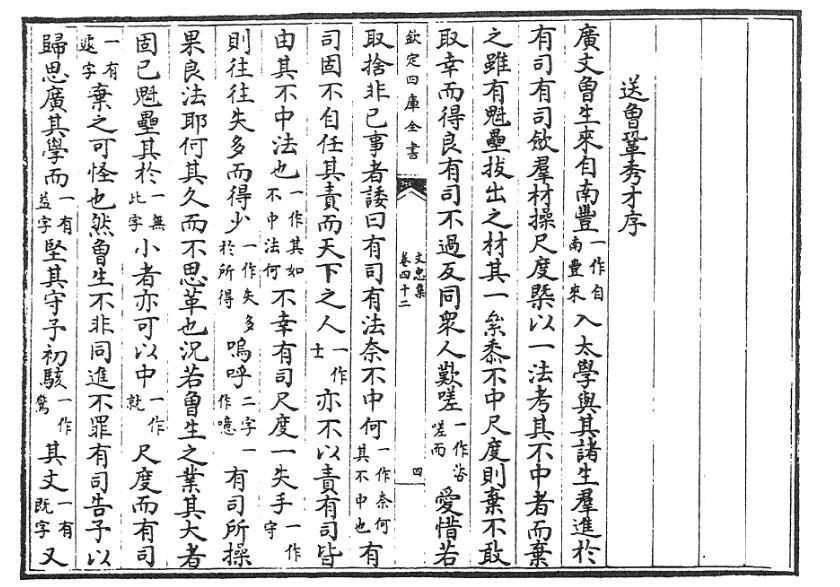 送曾鞏秀才序
廣文曾生來自南豐一作自南豐來入太學與其諸生羣進於
有司有司斂羣材操尺度槩以一法考其不中者而棄
之雖有魁壘拔出之材其一絫黍不中尺度則棄不敢
取幸而得良有司不過反同衆人歎嗟一作咨嗟而愛惜若
欽定四庫全書
文忠集
卷四十二
四
取捨非己事者諉曰有司有法奈不中何一作奈何其不中也有
司固不自任其責而天下之人一作士亦不以責有司皆
由其不中法也一作其如不中法何不幸有司尺度一失手一作守
則往往失多而得少一作失多於所得嗚呼二字一作噫有司所操
果良法耶何其久而不思革也況若曾生之業其大者
固已魁壘其於一無此字小者亦可以中一作就尺度而有司
一有遽字棄之可怪也然曾生不非同進不罪有司告予以
歸思廣其學而一有益字堅其守予初駭一作驚其文一有既字又